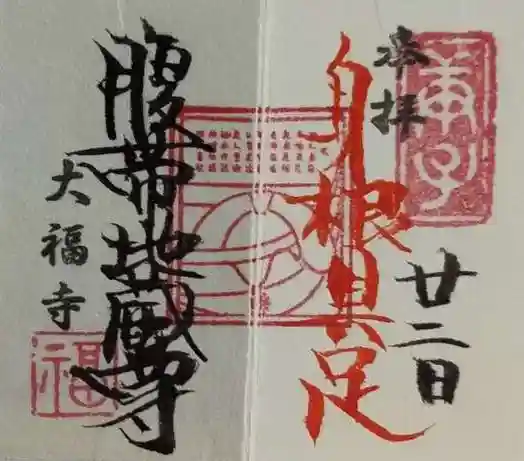 奉拝
庚子
廿二日
身根具足
腹帯地蔵尊
大福寺
福